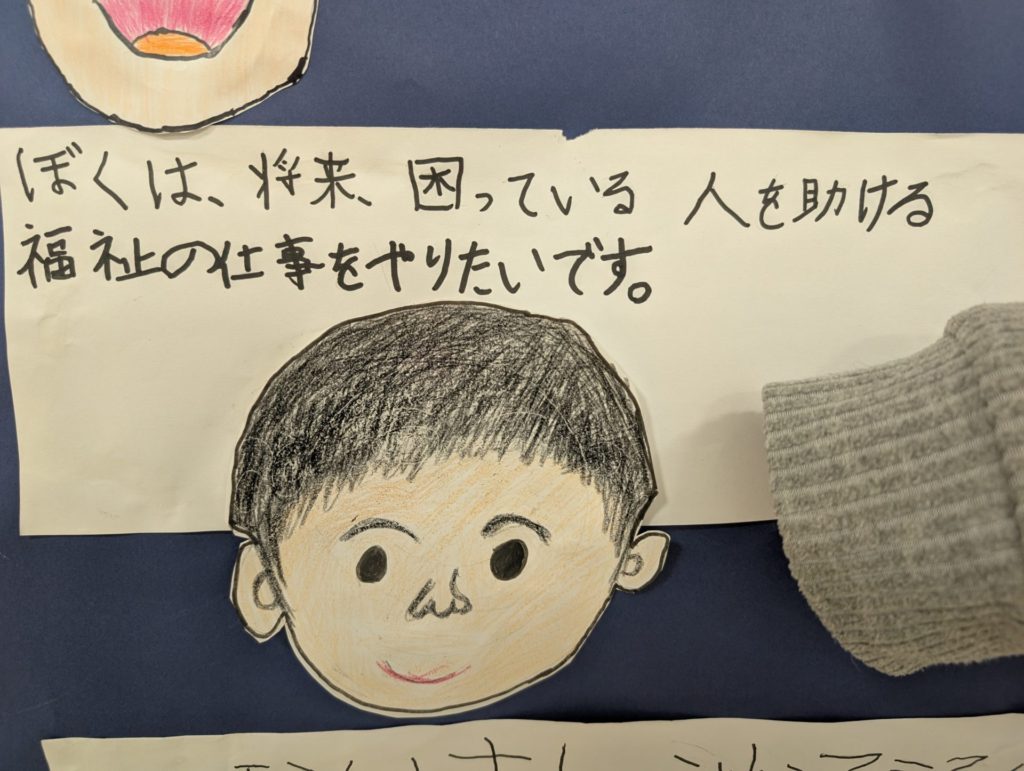 ぼくは、将来、困っている 人を助ける
福祉の仕事をやりたいです。